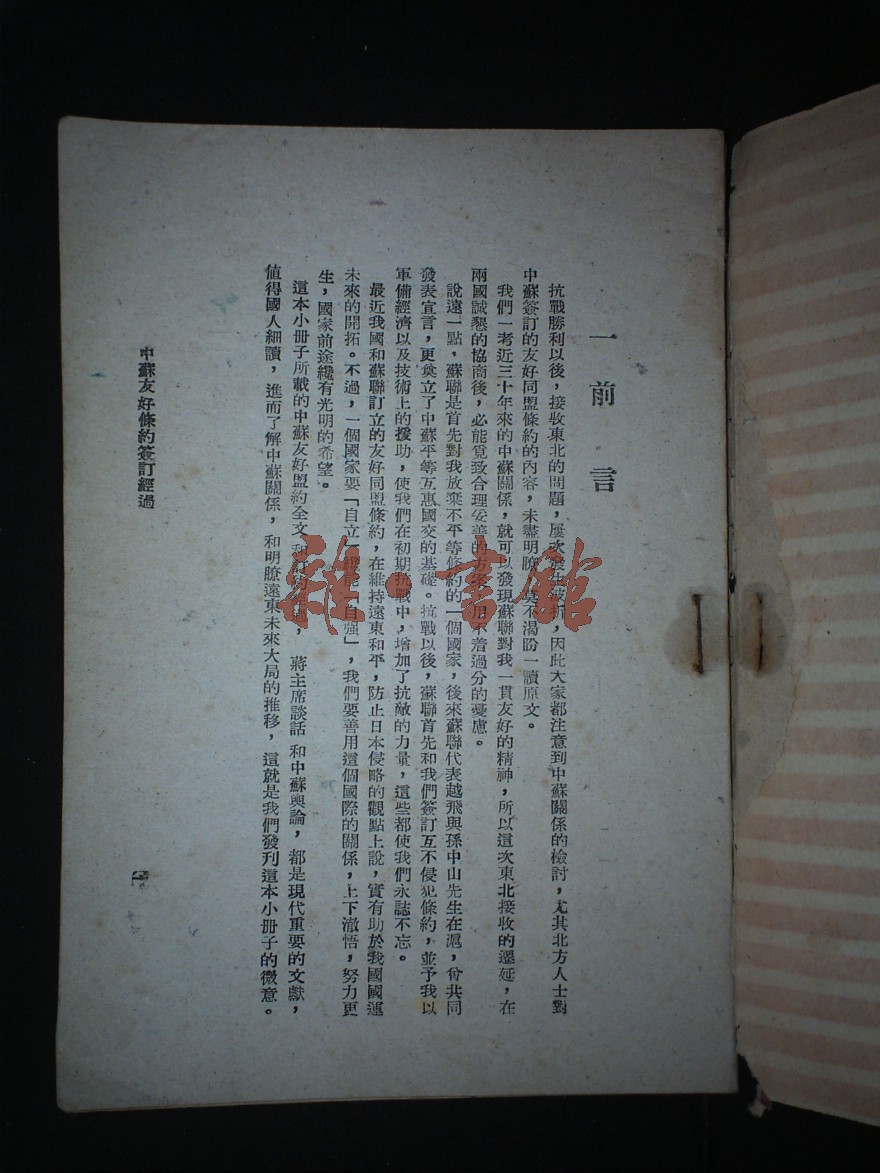 一 前言
抗戰勝利以後，接收東北的問題，屢次發生波折，因此大家都注意到中蘇關係的檢討，尤其北方人士對
中蘇簽訂的友好同盟條約的內容，未盡明瞭，莫不渴盼一讀原文。
我們一考近三十年來的中蘇關係，就可以發現蘇聯對我一貫友好的精神，所以這次東北接收的遷延，在
兩國誠懇的協商後，必能覓致合理妥善的方案，用不着過分的憂慮。
說遠一點，蘇聯是首先對我放棄不平等條約的一個國家，後來蘇聯代表越飛與孫中山先生在滬，曾共同
發表宣言，更奠立了中蘇平等互惠國交的基礎。抗戰以後，蘇聯首先和我們簽訂互不侵犯條約，並予我以
軍備經濟以及技術上的援助，使我們在初期抗戰中，增加了抗敵的力量，這些都使我們永誌不忘。
最近我國和蘇聯訂立的友好同盟條約，在維持遠東和平，防止日本侵略的觀點上說，實有助於我國國運
未來的開拓。不過，一個國家要「自立」纔能「自强」，我們要善用這個國際的關係，上下澈悟，努力更
生，國家前途纔有光明的希望。
這本小冊子所載的中蘇友好盟約全文 和訂約經過， 蔣主席談話 和中蘇輿論， 都是現代重要的文獻，
値得國人細讀，進而了解中蘇關係，和明瞭遠東未來大局的推移，這就是我們發刊這本小冊子的微意。
中蘇友好條約簽訂經過
一
雜·書館